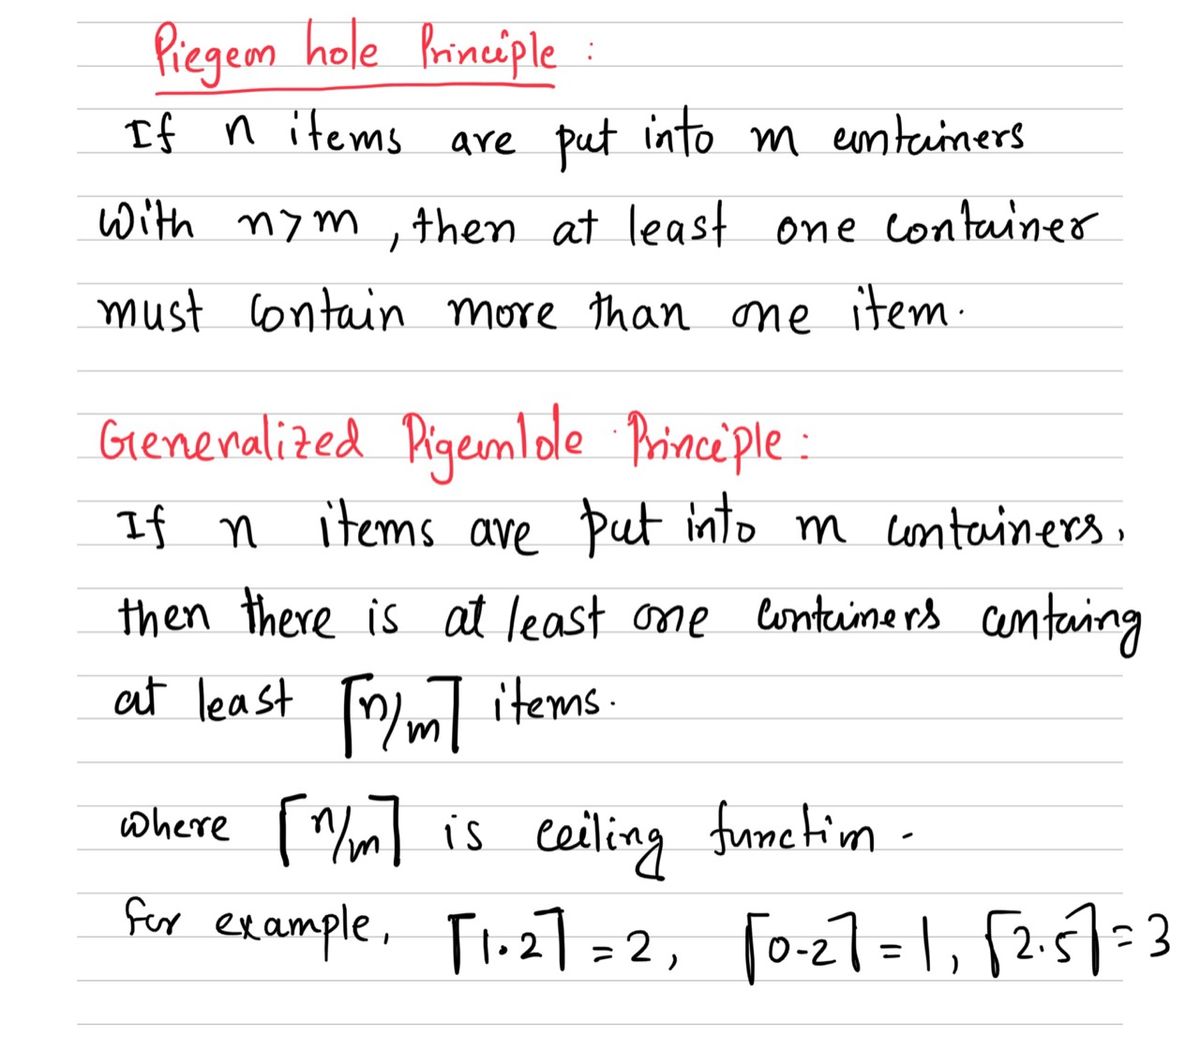 Piegeon hole Principle :
If n items are put into m containers
with n>m , then at least one container
must contain more than one item.
Generalized Pigeonhole Principle :
If n items are put into m containers,
then there is at least one containers containg
at least ⌈n/m⌉ items.
where ⌈n/m⌉ is ceiling function.
for example, ⌈1.2⌉ = 2, ⌈0.2⌉ = 1, ⌈2.5⌉ = 3